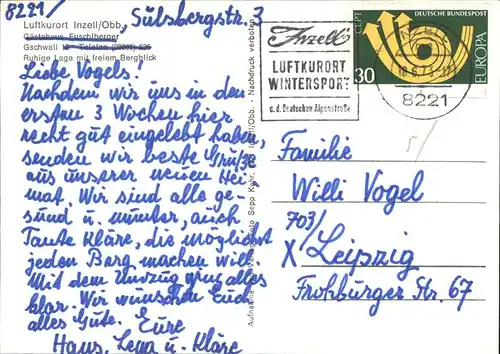 8221 / Sulsbergstr. 3
Luftkurort Inzell/Obb.
Gästehaus Euschlberger
Gschwall 12 - Telefon
Ruhige Lage mit freiem Bergblick
Liebe Vogels!
Nachdem wir uns in den
ersten 3 Wochen hier
recht gut eingelebt haben,
senden wir beste Grüße
aus unserer neuen Hei-
mat. Wir sind alle ge-
sund u. munter, auch
Tante Kläre, die möglichst
jeden Berg machen will.
Mit dem Umzug ging alles
klar. Wir wünschen Euch
alles Gute. Eure
Hans, Lena u. Kläre
Nachdruck verboten
Inzell's
LUFTKURORT
WINTERSPORT
a. d. Deutschen Alpenstraße
8221
CEPT
DEUTSCHE BUNDESPOST
30
EUROPA
Familie
Willi Vogel
703/
X Leipzig
Frohburger Str. 67